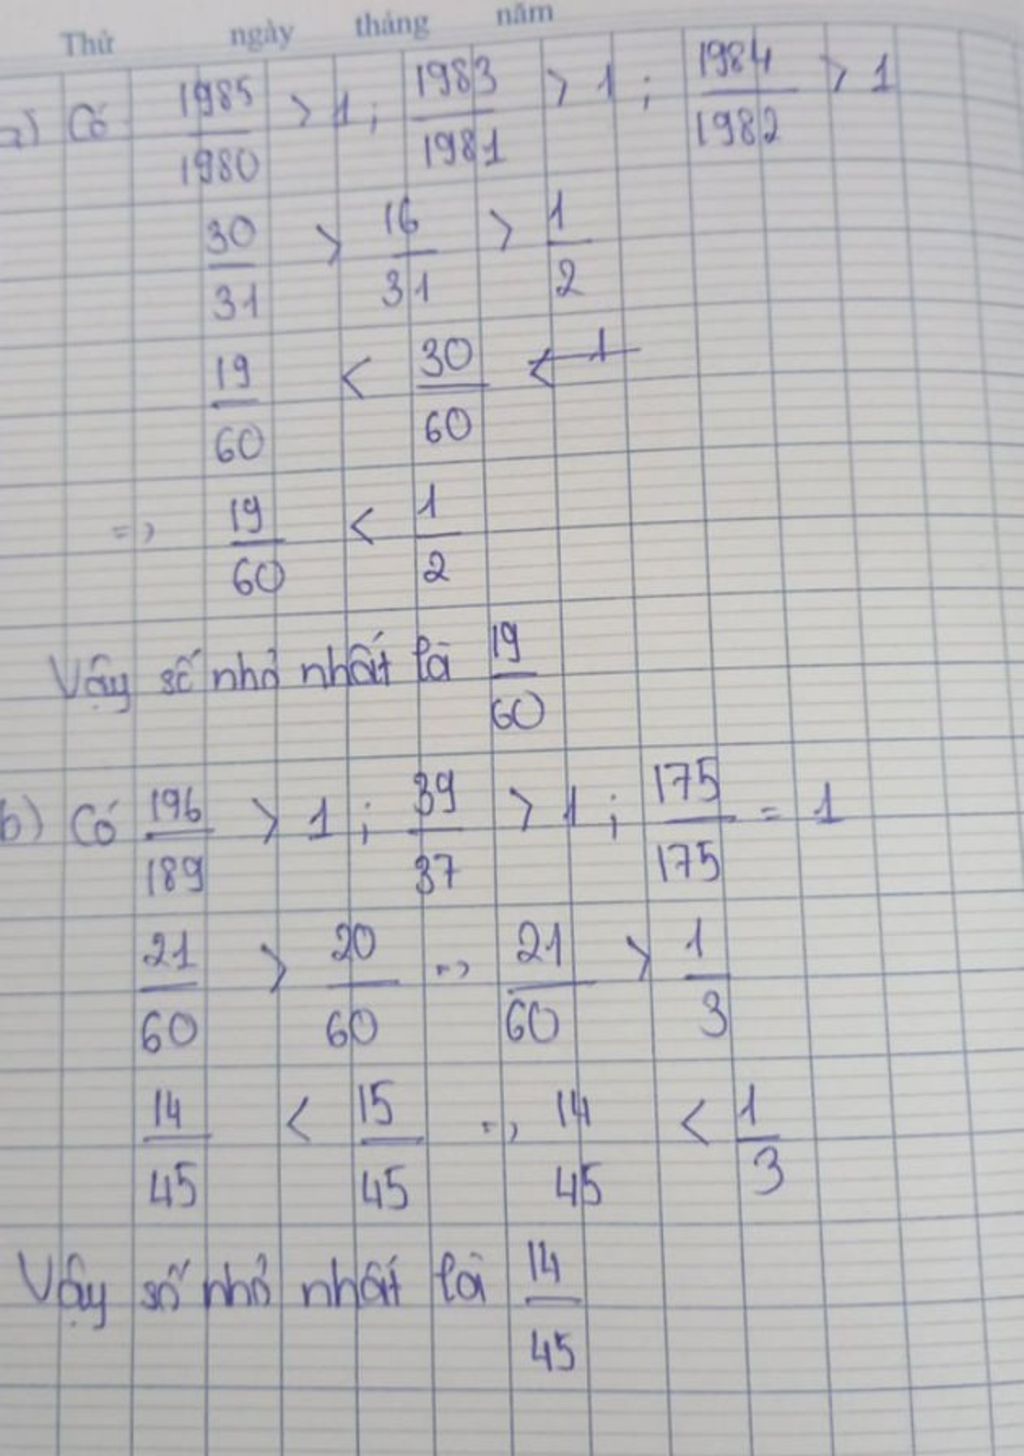 Thứ ngày tháng năm
a) Có 1985/1980 > 1 ; 1983/1981 > 1 ; 1984/1982 > 1
30/31 > 16/31 > 1/2
19/60 < 30/60 < 1
=> 19/60 < 1/2
Vậy số nhỏ nhất là 19/60
b) Có 196/189 > 1 ; 39/37 > 1 ; 175/175 = 1
21/60 > 20/60 => 21/60 > 1/3
14/45 < 15/45 => 14/45 < 1/3
Vậy số nhỏ nhất là 14/45